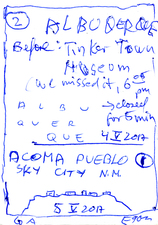 2 ALBUQERQUE
Before: Tinker Town
Museum
(we missed it, 6 00 pm
ALBU → closed
QUER for 5 min
QUE 4 V 2017
ACOMA PUEBLO 1
SKY CITY N.M.
5 V 2017
GA